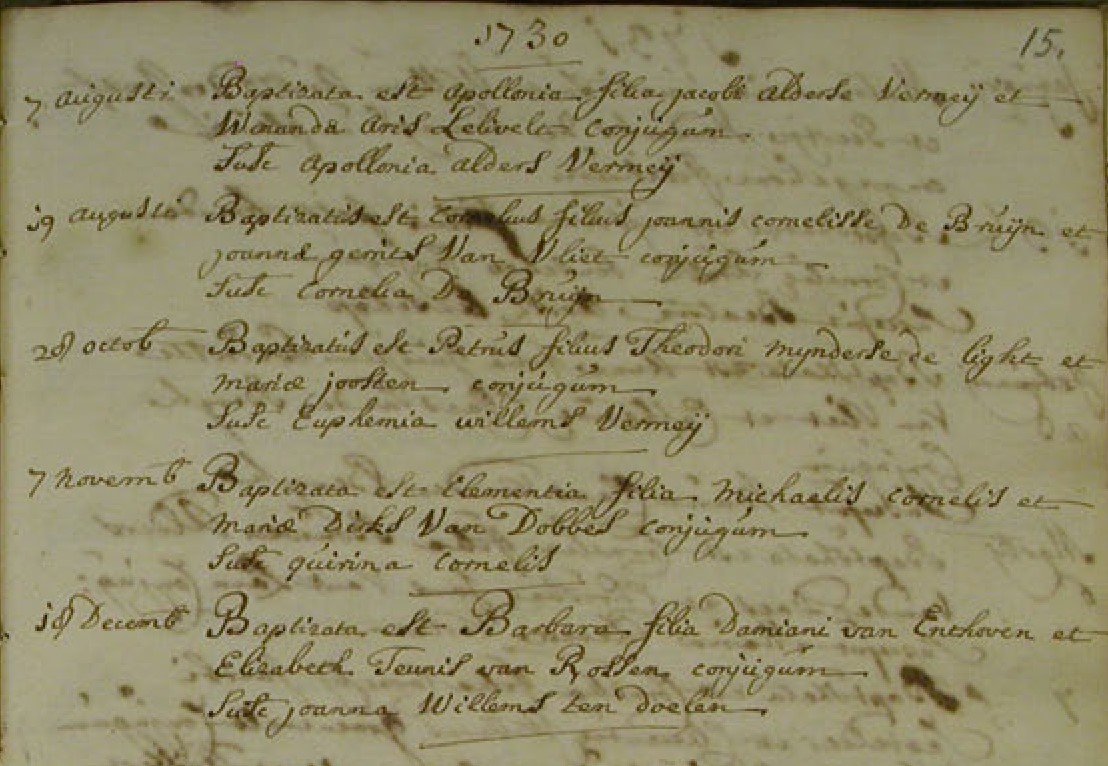 1730
15.
7 augusti Baptizata est apollonia filia jacobi alderse Vermeij et
Wmanda aris Lelivelt conjugum
Susc apollonia alders Vermeij
19 augusti Baptizatus est Cornelius filius joannis cornelisse De Bruijn et
joannæ gerrits Van Vliet conjugum
Susc Cornelia De Bruijn
28 octob Baptizatus est Petrus filius Theodori mynderse de light et
mariæ joosten conjugum
Susc Euphemia willems Vermeij
7 novemb Baptizata est Clementia filia michaelis cornelis et
mariæ Dirks Van Dobbes conjugum
Susc quirina Cornelis
18 Decemb Baptizata est Barbara filia Damiani van Enthoven et
Elizabeth Teunis van Rossen conjugum
Susc joanna Willems ten doelen